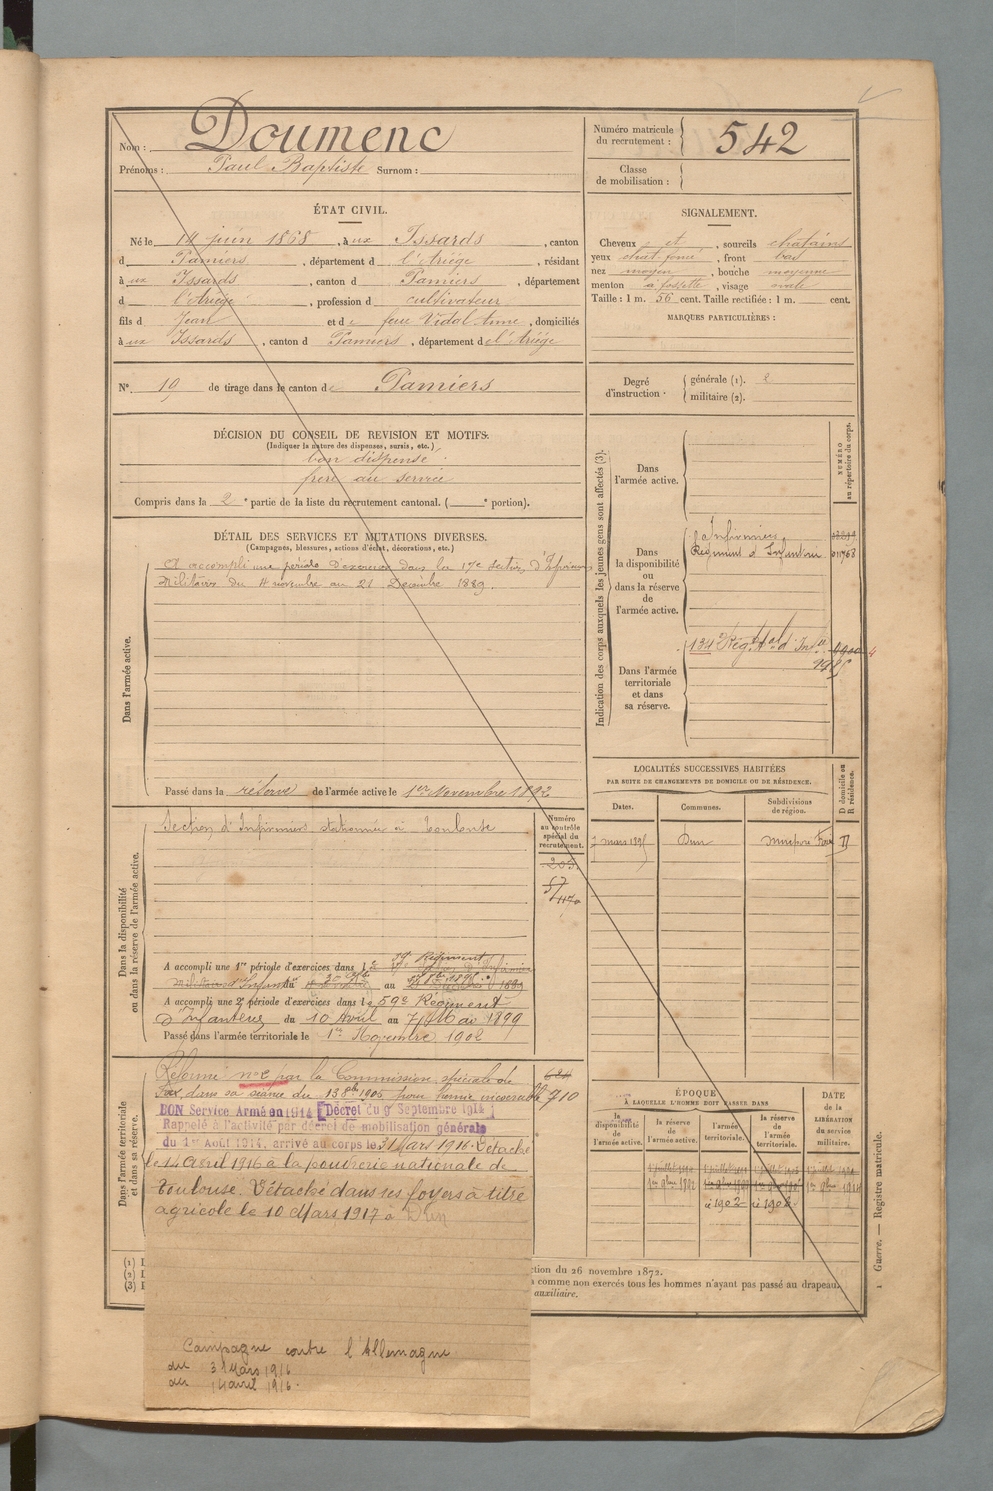 Nom : Doumenc
Prénoms : Paul Baptiste Surnom :
Numéro matricule du recrutement : 542
Classe de mobilisation :
ÉTAT CIVIL.
Né le 14 juin 1868, à ux Issards, canton
d Pamiers, département d l'Ariége, résidant
à ux Issards, canton d Pamiers, département
d l'Ariége, profession d cultivateur
fils d Jean et d e feue Vidal Anne, domiciliés
à ux Issards, canton d Pamiers, département de l'Ariége
N° 19 de tirage dans le canton de Pamiers
SIGNALEMENT.
Cheveux et, sourcils chatains
yeux chat foncé, front bas
nez moyen, bouche moyenne
menton à fossette, visage ovale
Taille : 1 m. 56 cent. Taille rectifiée : 1 m. cent.
MARQUES PARTICULIÈRES :
Degré d'instruction. générale (1). 2
militaire (2).
DÉCISION DU CONSEIL DE REVISION ET MOTIFS.
(Indiquer la nature des dispenses, sursis, etc.)
bon dispensé
frère au service
Compris dans la 2e partie de la liste du recrutement cantonal. ( e portion).
DÉTAIL DES SERVICES ET MUTATIONS DIVERSES.
(Campagnes, blessures, actions d'éclat, décorations, etc.)
Dans l'armée active.
A accompli une période d'exercices dans la 17e Section d'Infirmiers
Militaires du 4 novembre au 21 Decembre 1889.
Passé dans la réserve de l'armée active le 1er Novembre 1892
Indication des corps auxquels les jeunes gens sont affectés (3).
NUMÉRO au répertoire du corps.
Dans l'armée active.
Dans la disponibilité ou dans la réserve de l'armée active.
Infirmiers
Régiment d'Infanterie 01768
Dans l'armée territoriale et dans sa réserve.
134e Régt tal d'Inf.ie
LOCALITÉS SUCCESSIVES HABITÉES
PAR SUITE DE CHANGEMENTS DE DOMICILE OU DE RÉSIDENCE.
D domicile ou R résidence.
Dates. Communes. Subdivisions de région.
2 mars 1895 Dun Foix D
Dans la disponibilité ou dans la réserve de l'armée active.
Numéro au contrôle spécial du recrutement.
Section d'Infirmiers stationnée à Toulouse
205
A accompli une 1re période d'exercices dans le 59e Régiment
A accompli une 2e période d'exercices dans le 59e Régiment
d'Infanterie du 10 Avril au 7 Mai 1899
Passé dans l'armée territoriale le 1er Novembre 1902
Dans l'armée territoriale et dans sa réserve.
Réformé n°2 par la Commission spéciale de
Foix dans sa séance du 13 8bre 1905 pour hernie 710
BON Service Armé en 1914 [Décret du 9 Septembre 1914]
Rappelé à l'activité par décret de mobilisation générale
du 1er Août 1914, arrivé au corps le 31 Mars 1916. Détaché
le 14 avril 1916 à la poudrerie nationale de
Toulouse. Détaché dans ses foyers à titre
agricole le 10 Mars 1917 à Dun
Campagne contre l'Allemagne
du 31 Mars 1916
au 14 avril 1916.
ÉPOQUE
À LAQUELLE L'HOMME DOIT PASSER DANS
la disponibilité de l'armée active.
la réserve de l'armée active.
l'armée territoriale.
la réserve de l'armée territoriale.
DATE de la LIBÉRATION du service militaire.
1er 9bre 1892
9 1902
(1)
(2)
(3)
ction du 26 novembre 1872.
comme non exercés tous les hommes n'ayant pas passé au drapeau.
auxiliaire.
Guerre. — Registre matricule.